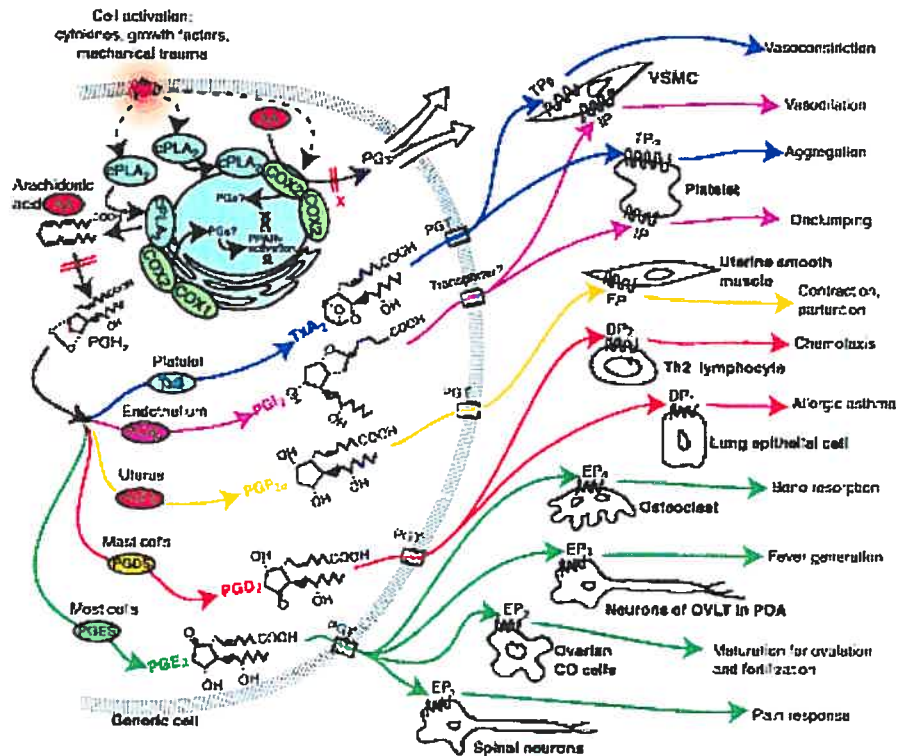 Cell activation:
cytokines, growth factors,
mechanical trauma
cPLA2
cPLA2
cPLA2
cPLA2
AA
COX2
COX2
PGs
PGs?
PGs?
PPARs
activation
COX2
COX1
x
Arachidonic
acid
COOH
COOH
OH
PGH2
Platelet
TxA2
COOH
OH
Endothelium
PGI2
COOH
HO
OH
Uterus
COOH
OH
OH
Mast cells
PGDS
PGD2
OH
COOH
O
OH
Most cells
PGES
PGE2
O
COOH
OH
OH
Generic cell
PGT
Transporter?
PGT
PGT
PGT
VSMC
IP
Vasoconstriction
Vasodilation
Platelet
IP
Aggregation
Declumping
Uterine smooth
muscle
FP
Contraction,
parturition
Th2 lymphocyte
Chemotaxis
Lung epithelial cell
Allergic asthma
Osteoclast
Bone resorption
Neurons of OVLT in POA
Fever generation
Ovarian
CO cells
Maturation for ovulation
and fertilization
Spinal neurons
Pain response